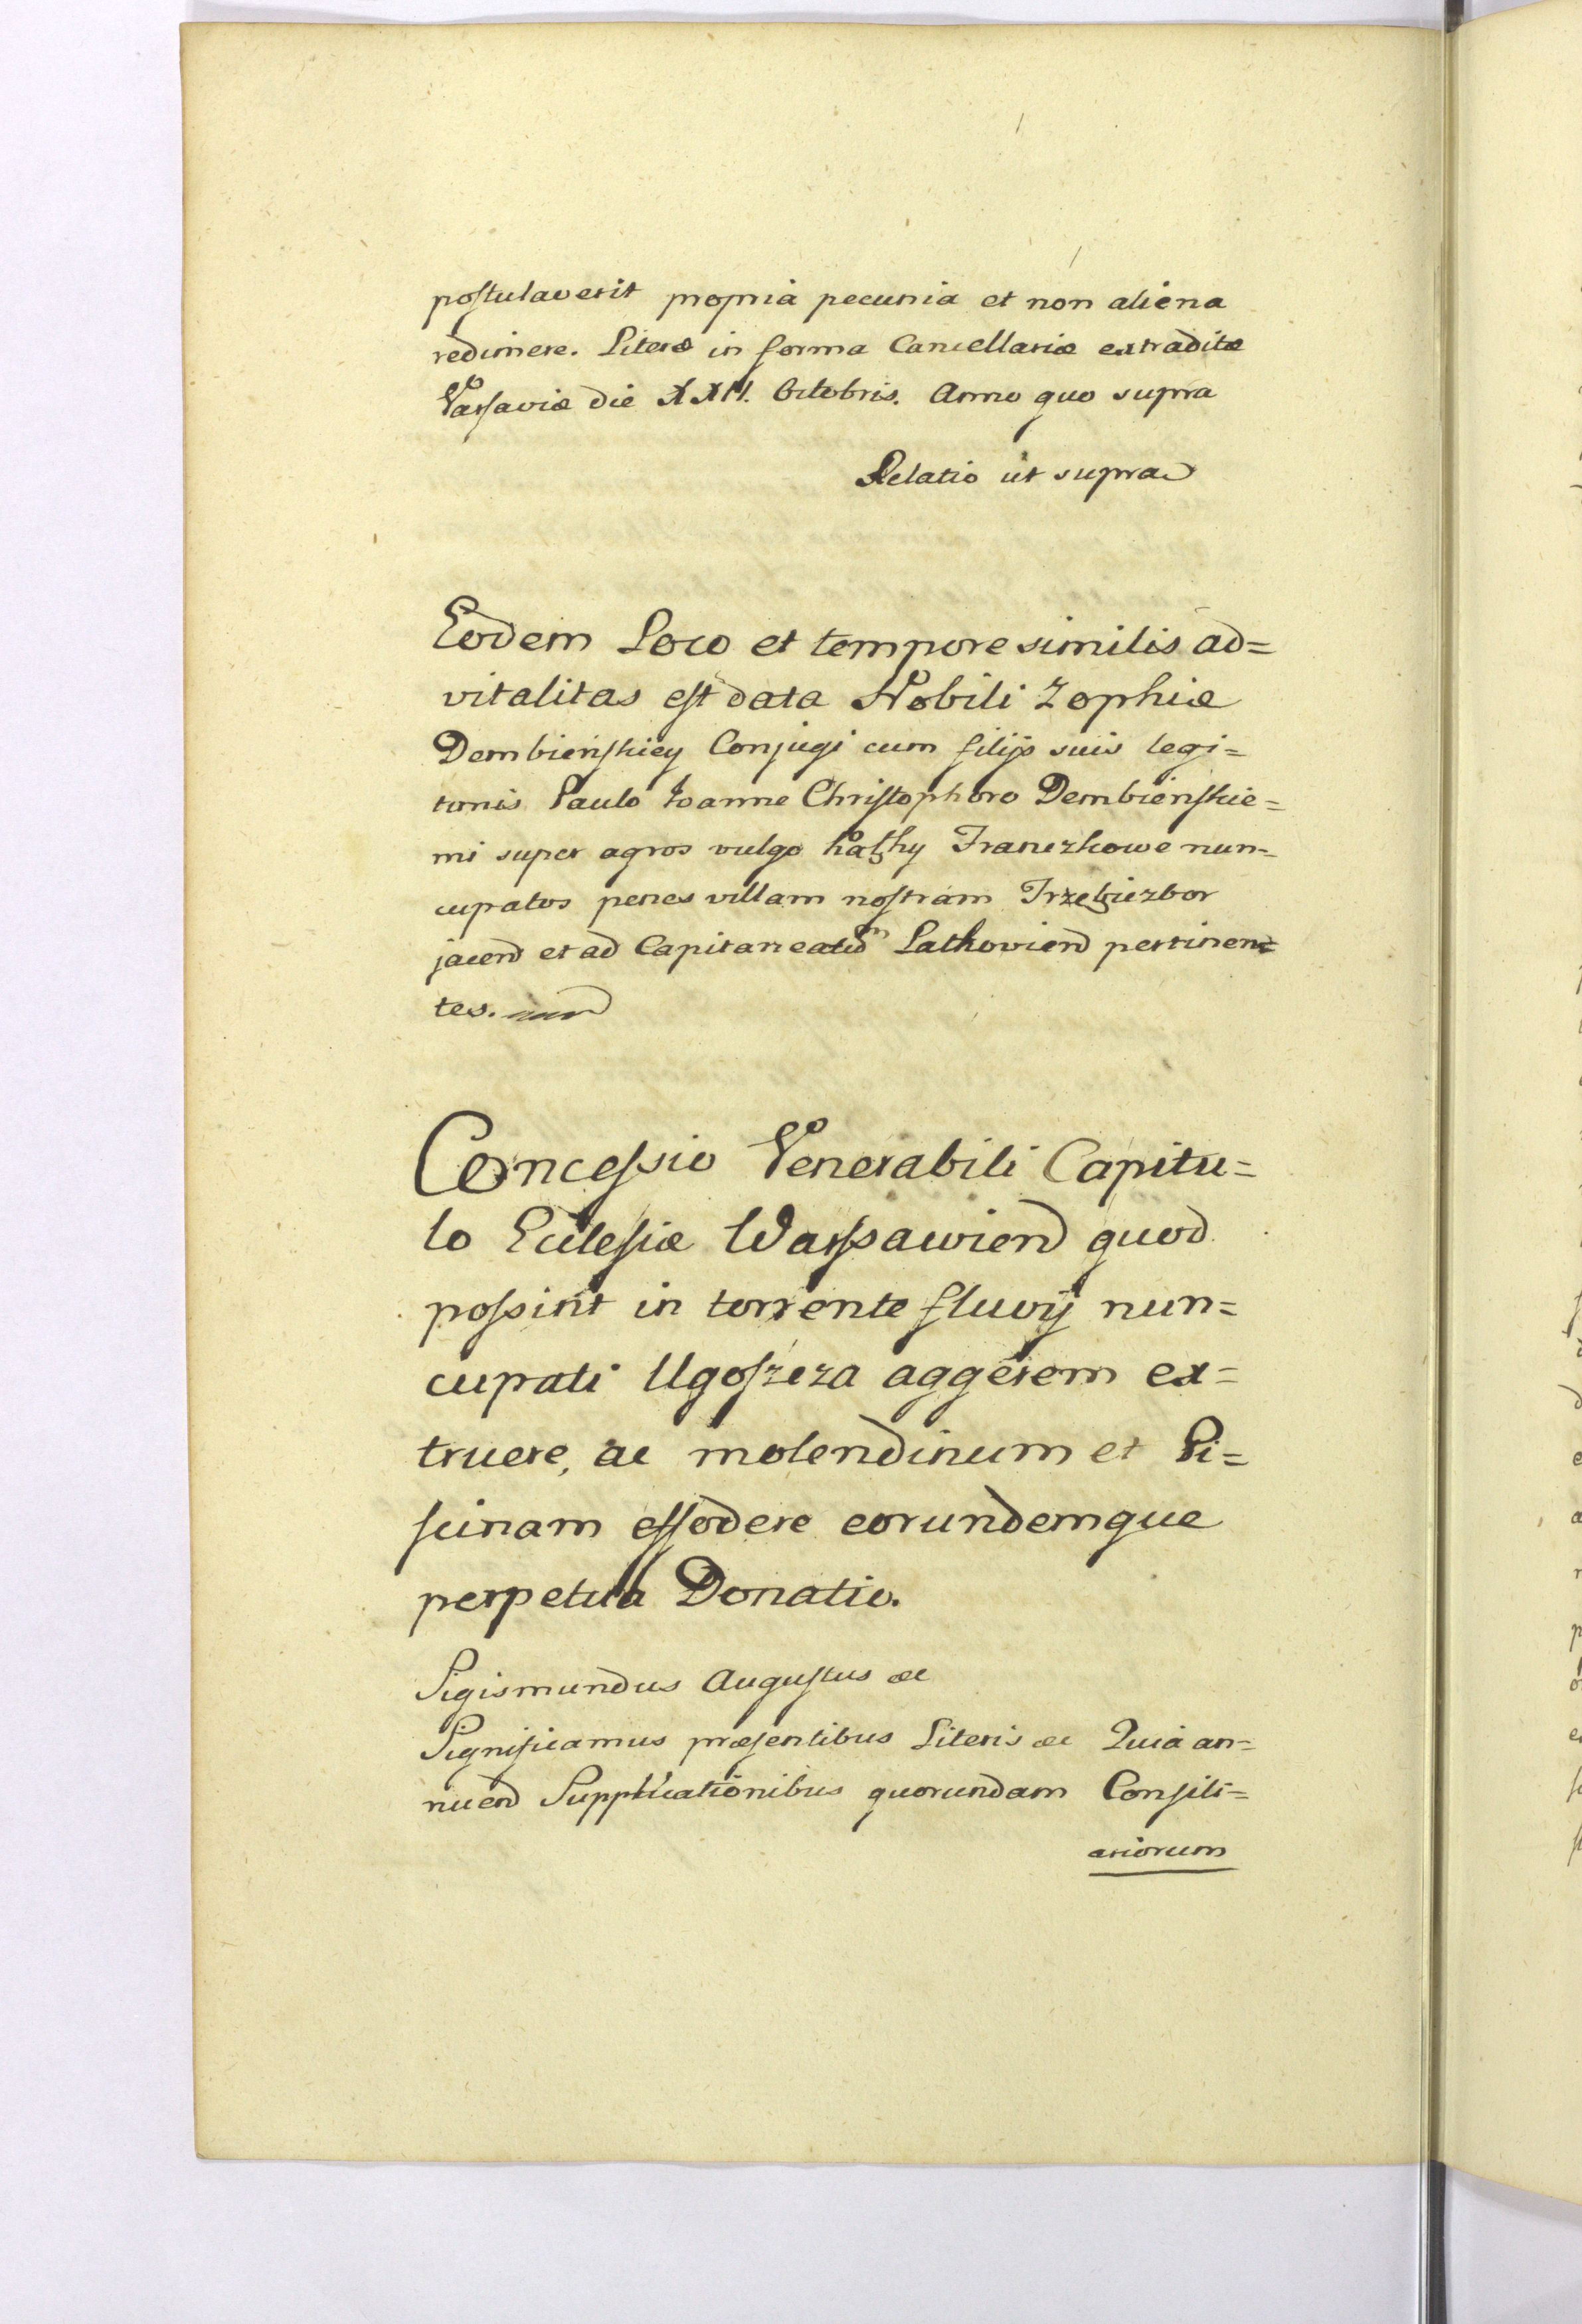 postulaverit propria pecunia et non aliena
redimere. Literæ in forma Cancellariæ extraditæ
Varsaviæ die XXII. Octobris. Anno quo supra
Relatio ut supra
Eodem Loco et tempore similis ad=
vitalitas est data Nobili Zophiæ
Dembienskiey Conjugi cum filijs suis legi=
timis Paulo Joanne Christophoro Dembienskie=
mi super agros vulgo Franczkowe nun=
cupatos penes villam nostram
jacend et ad Capitaneatum Lathoviend pertinen=
tes.
Concessio Venerabili Capitu=
lo Ecclesiæ Warssawiend quod
possint in torrente fluvij nun=
cupati Ugoszcza aggerem ex=
truere, ac molendinum et Pi=
scinam effodere eorundemque
perpetua Donatio.
Sigismundus Augustus &c
Significamus præsentibus Literis &c Quia an=
nuend Supplicationibus quorundam Consili=
ariorum